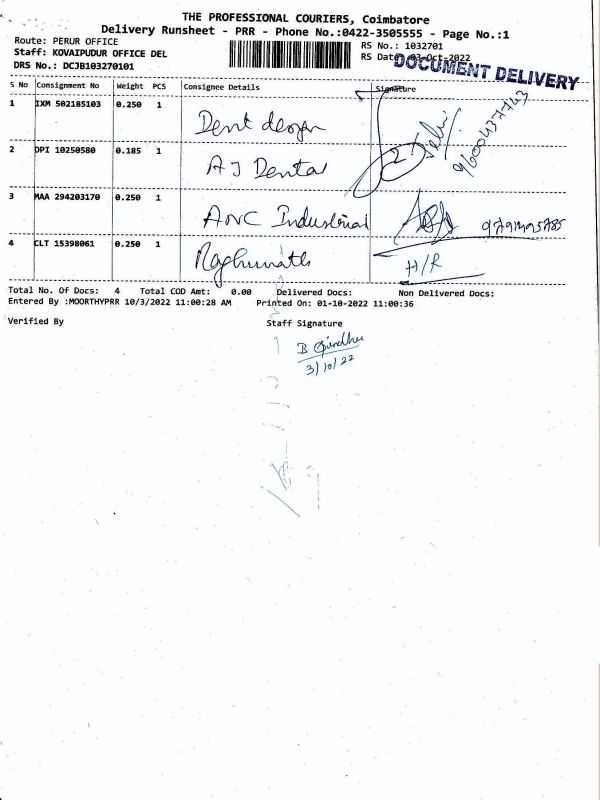 THE PROFESSIONAL COURIERS, Coimbatore
Delivery Runsheet - PRR - Phone No.:0422-3505555 - Page No.:1
Route: PERUR OFFICE
RS No.: 1032701
Staff: KOVAIPUDUR OFFICE DEL
RS Date: 03-Oct-2022
DOCUMENT DELIVERY
DRS No.: DCJB103270101
S No Consignment No Weight PCS Consignee Details Signature
1 IXM 502185103 0.250 1 Dent design
9600437743
2 DPI 10250580 0.185 1 AJ Dental
3 MAA 294203170 0.250 1 ANC Industrial
4 CLT 15398061 0.250 1 Raghunath H/R
Total No. Of Docs: 4 Total COD Amt: 0.00 Delivered Docs: Non Delivered Docs:
Entered By :MOORTHYPRR 10/3/2022 11:00:28 AM Printed On: 01-10-2022 11:00:36
Verified By Staff Signature
3/10/22